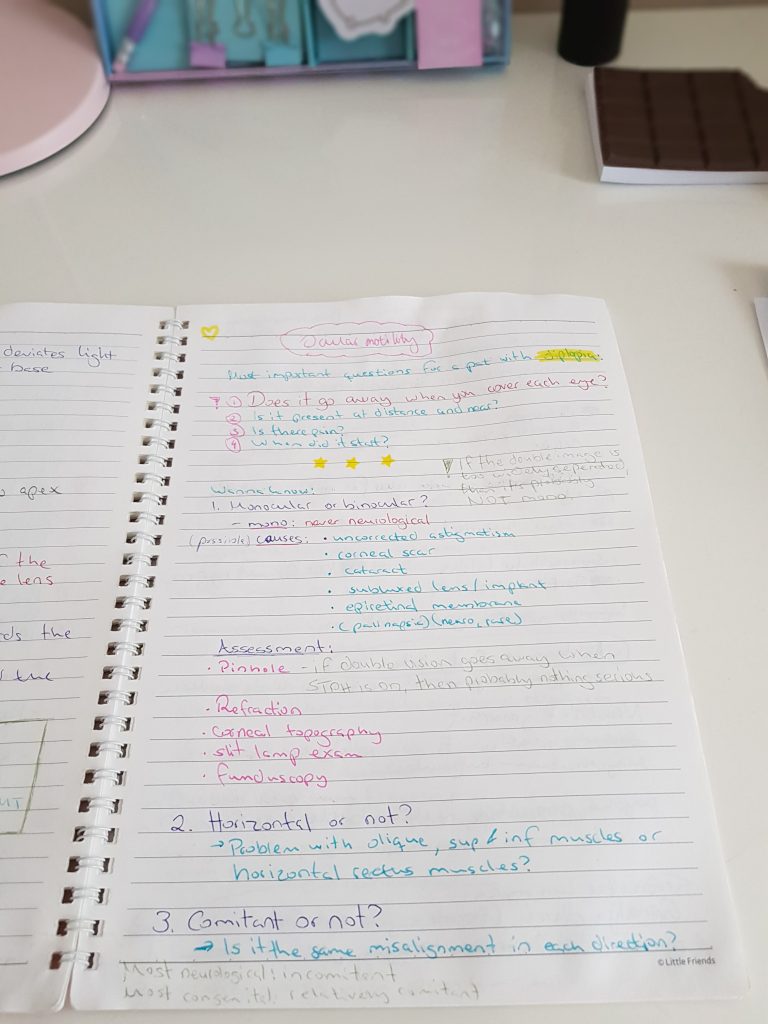 deviates light
base
apex
the
lens
the
the
Ocular motility
Most important questions for a pat with diplopia:
① Does it go away when you cover each eye?
② Is it present at distance and near?
③ Is there pain?
④ When did it start?
If the double image is
too widely seperated,
than its probably
NOT mono.
Wanna know:
1. Monocular or binocular?
- mono: never neurological
(possible) causes: • uncorrected astigmatism
• corneal scar
• cataract
• subluxed lens/implant
• epiretinal membrane
• (palinapsia) (neuro, rare)
Assessment:
• Pinhole - if double vision goes away when
STPH is on, then probably nothing serious
• Refraction
• Corneal topography
• slit lamp exam
• funduscopy
2. Horizontal or not?
→ Problem with olique, sup & inf muscles or
horizontal rectus muscles?
3. Comitant or not?
→ Is it the same misalignment in each direction?
© Little Friends
Most neurological: incomitent
Most congenital: relatively comitant